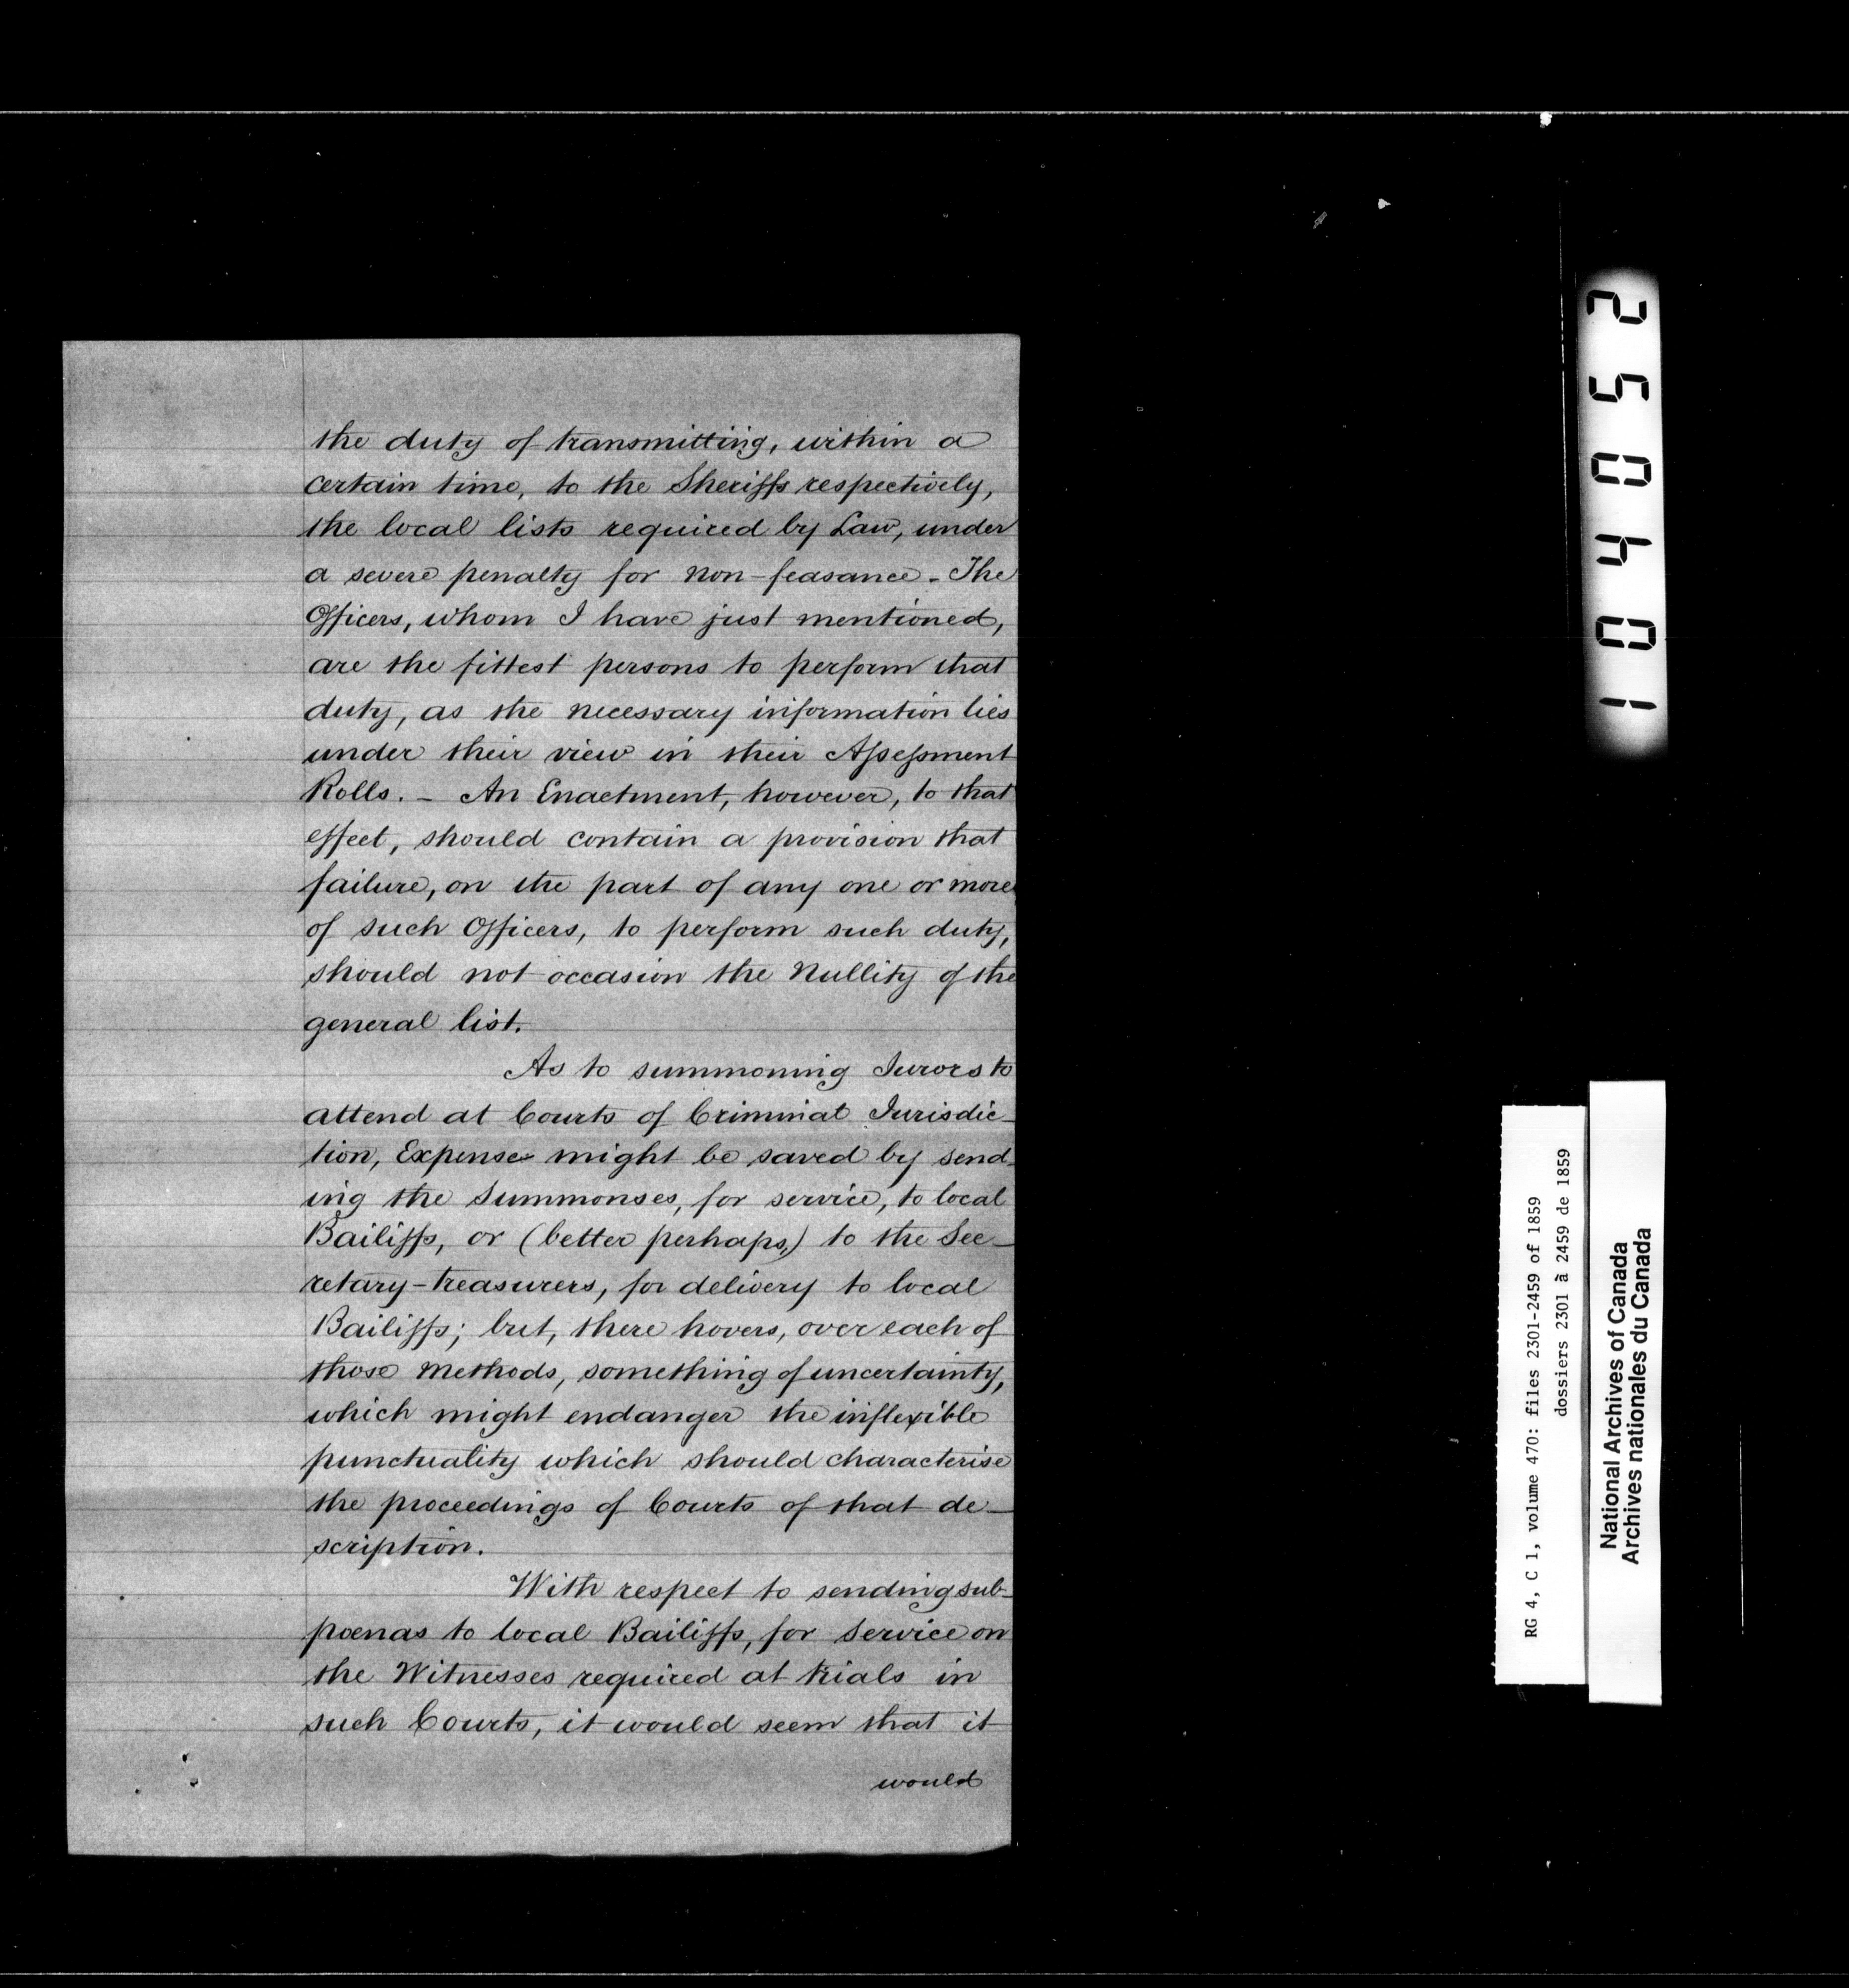 the duty of transmitting, within a
certain time, to the Sheriffs respectively,
the local lists required by Law, under
a severe penalty for non-feasance - The
Officers, whom I have just mentioned,
are the fittest persons to perform that
duty, as the necessary information lies
under their view in their Assessment
Rolls. - An Enactment, however, to that
effect, should contain a provision that
failure, on the part of any one or more
of such Officers, to perform such duty,
should not occasion the Nullity of the
general list.
As to summoning Jurors to
attend at Courts of Criminal Jurisdic-
tion, Expense might be saved by send-
ing the Summonses, for service, to local
Bailiffs, or (better perhaps,) to the Sec-
retary-treasurers, for delivery to local
Bailiffs; but, there hovers, over each of
those Methods, something of uncertainty,
which might endanger the inflexible
punctuality which should characterise
the proceedings of Courts of that de-
scription.
With respect to sending sub-
poenas to local Bailiffs, for Service on
the Witnesses required at trials in
such Courts, it would seem that it
would
250401
RG 4, C 1, volume 470: files 2301-2459 of 1859
dossiers 2301 à 2459 de 1859
National Archives of Canada
Archives nationales du Canada